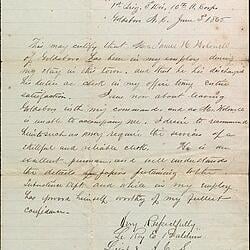 1st Brig. 2 Div. 10th A. Corps
Goldsboro N.C. June 3d 1865
This may certify that Mr. Samuel H.
of Goldsboro has been in my employ during
my stay in this town, and that he has discharged
his duties as clerk in my office to my entire
satisfaction. I am now about leaving
Goldsboro with my command, and as
is unable to accompany me, I desire to recommend
him to such as may require the services of a
skillful and reliable clerk. He is an
excellent penman, and well understands
the details and papers pertaining to the
Subsistence Dept. and while in my employ
has proved himself, worthy of my fullest
confidence.
Very Respectfully
Le Roy E. Baldwin